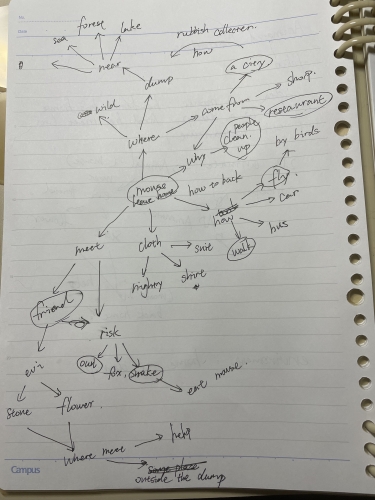 No.
Date
forest
lake
sea
near
rubbish collection.
how
dump
a city
wild
come from
shop.
restaurant
where
people
clean
up
by birds
why
mouse
leave home
how to back
fly
car
how
bus
walk
meet
cloth
suit
shirt
nighty
friend
risk
owl
fox.
snake
eat mouse.
stone
flower.
where meet
help
outside the dump
Campus